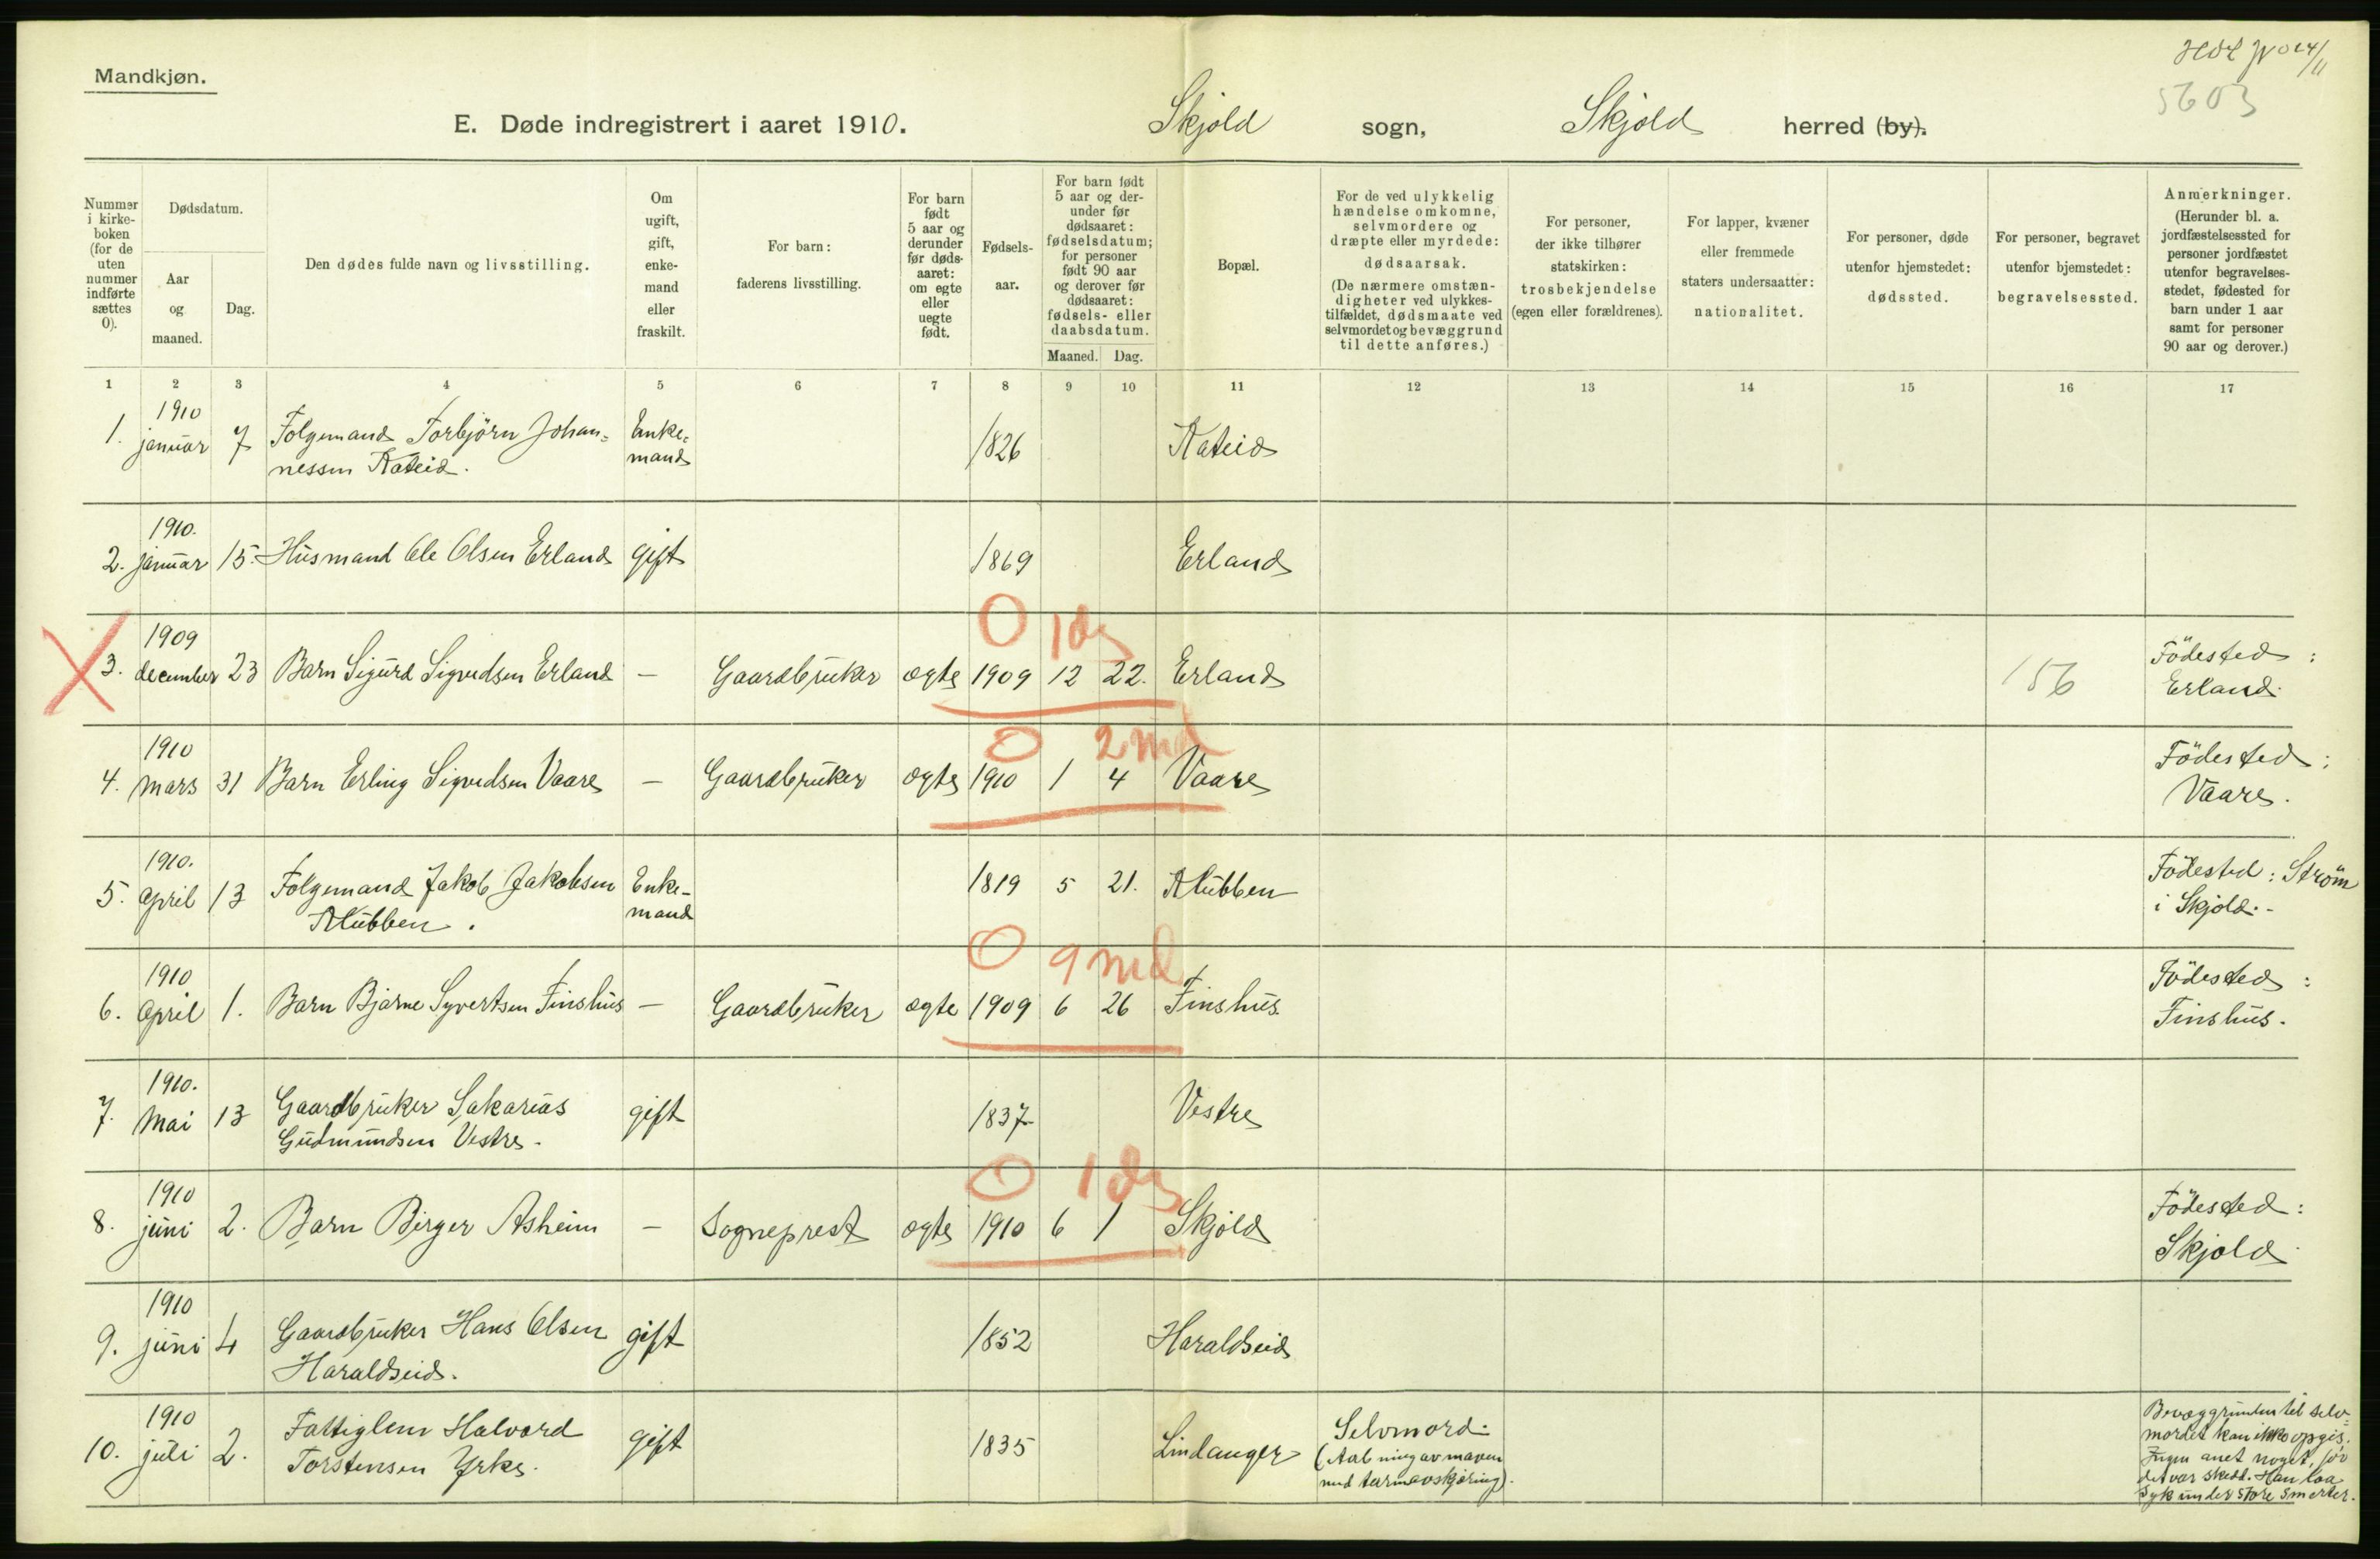 Mandkjøn.
E. Døde indregistrert i aaret 1910. Skjold sogn, Skjold herred (by).
5603
Nummer i kirke-boken (for de uten nummer indførte sættes 0).
Dødsdatum.
Aar og maaned.
Dag.
Den dødes fulde navn og livsstilling.
Om ugift, gift, enke-mand eller fraskilt.
For barn: faderens livsstilling.
For barn født 5 aar og derunder før døds-aaret: om egte eller uegte født.
Fødsels-aar.
For barn født 5 aar og der-under før dødsaaret: fødselsdatum; for personer født 90 aar og derover før dødsaaret: fødsels- eller daabsdatum.
Maaned. Dag.
Bopæl.
For de ved ulykkelig hændelse omkomne, selvmordere og dræpte eller myrdede: dødsaarsak.
(De nærmere omstæn-digheter ved ulykkes-tilfældet, dødsmaate ved selvmordet og bevæggrund til dette anføres.)
For personer, der ikke tilhører statskirken: trosbekjendelse (egen eller forældrenes).
For lapper, kvæner eller fremmede staters undersaatter: nationalitet.
For personer, døde utenfor hjemstedet: dødssted.
For personer, begravet utenfor hjemstedet: begravelsessted.
Anmerkninger.
(Herunder bl. a. jordfæstelsessted for personer jordfæstet utenfor begravelses-stedet, fødested for barn under 1 aar samt for personer 90 aar og derover.)
1 2 3 4 5 6 7 8 9 10 11 12 13 14 15 16 17
1910
1. januar 7 Folgemand Torbjörn Johan= Enke= 1826 Kateid
nessen Kateid. mand
1910.
2. januar 15. Husmand Ole Olsen Erland gift 1869 Erland
0 1 dg
1909
3. december 23 Barn Sigurd Sigvudsen Erland — Gaardbruker ægte 1909 12 22. Erland 156 Födested:
Erland.
0 2 md
1910
4. Mars 31 Barn Erling Sigvudsen Vaare — Gaardbruker ægte 1910 1 4 Vaare Födested:
Vaare.
1910.
5. April 13 Folgemand Jakob Jakobsen Enke- 1819 5 21. Klubben Födested: Ström
Klubben. mand i Skjold.-
0 9 md
1910
6. April 1. Barn Bjarne Syvertsen Finshus — Gaardbruker ægte 1909 6 26 Finshus. Födested:
Finshus.
1910.
7. Mai 13 Gaardbruker Sakarias gift 1837 Vestre
Gudmundsen Vestre.
0 1 dg
1910
8. juni 2. Barn Birger Asheim — Sogneprest ægte 1910 6 1 Skjold Födested:
Skjold
1910
9. juni 4 Gaardbruker Hans Olsen gift 1852 Haraldseid
Haraldseid.
1910
10. juli 2. Fattiglem Halvard gift 1835 Lindanger Selvmord.
Torstensen Yrke. (Aabning av maven
med tarmavskjæring).
Bevæggrunden til selv=
mordet kan ikke opgis.
Ingen anet noget, för
det var skedd. Han laa
syk under store smerter.